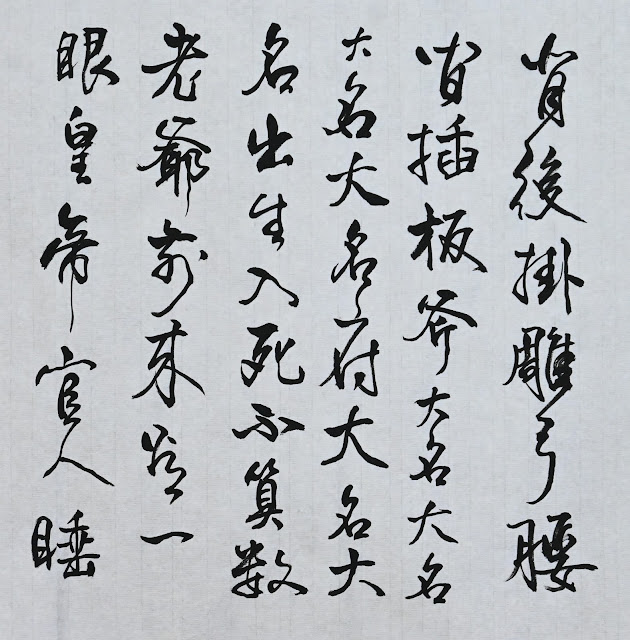 背後掛雕弓腰
間插板斧大名大名
大名大名府大名大
名出生入死不算數
老爺前來一
眼皇帝官人睡